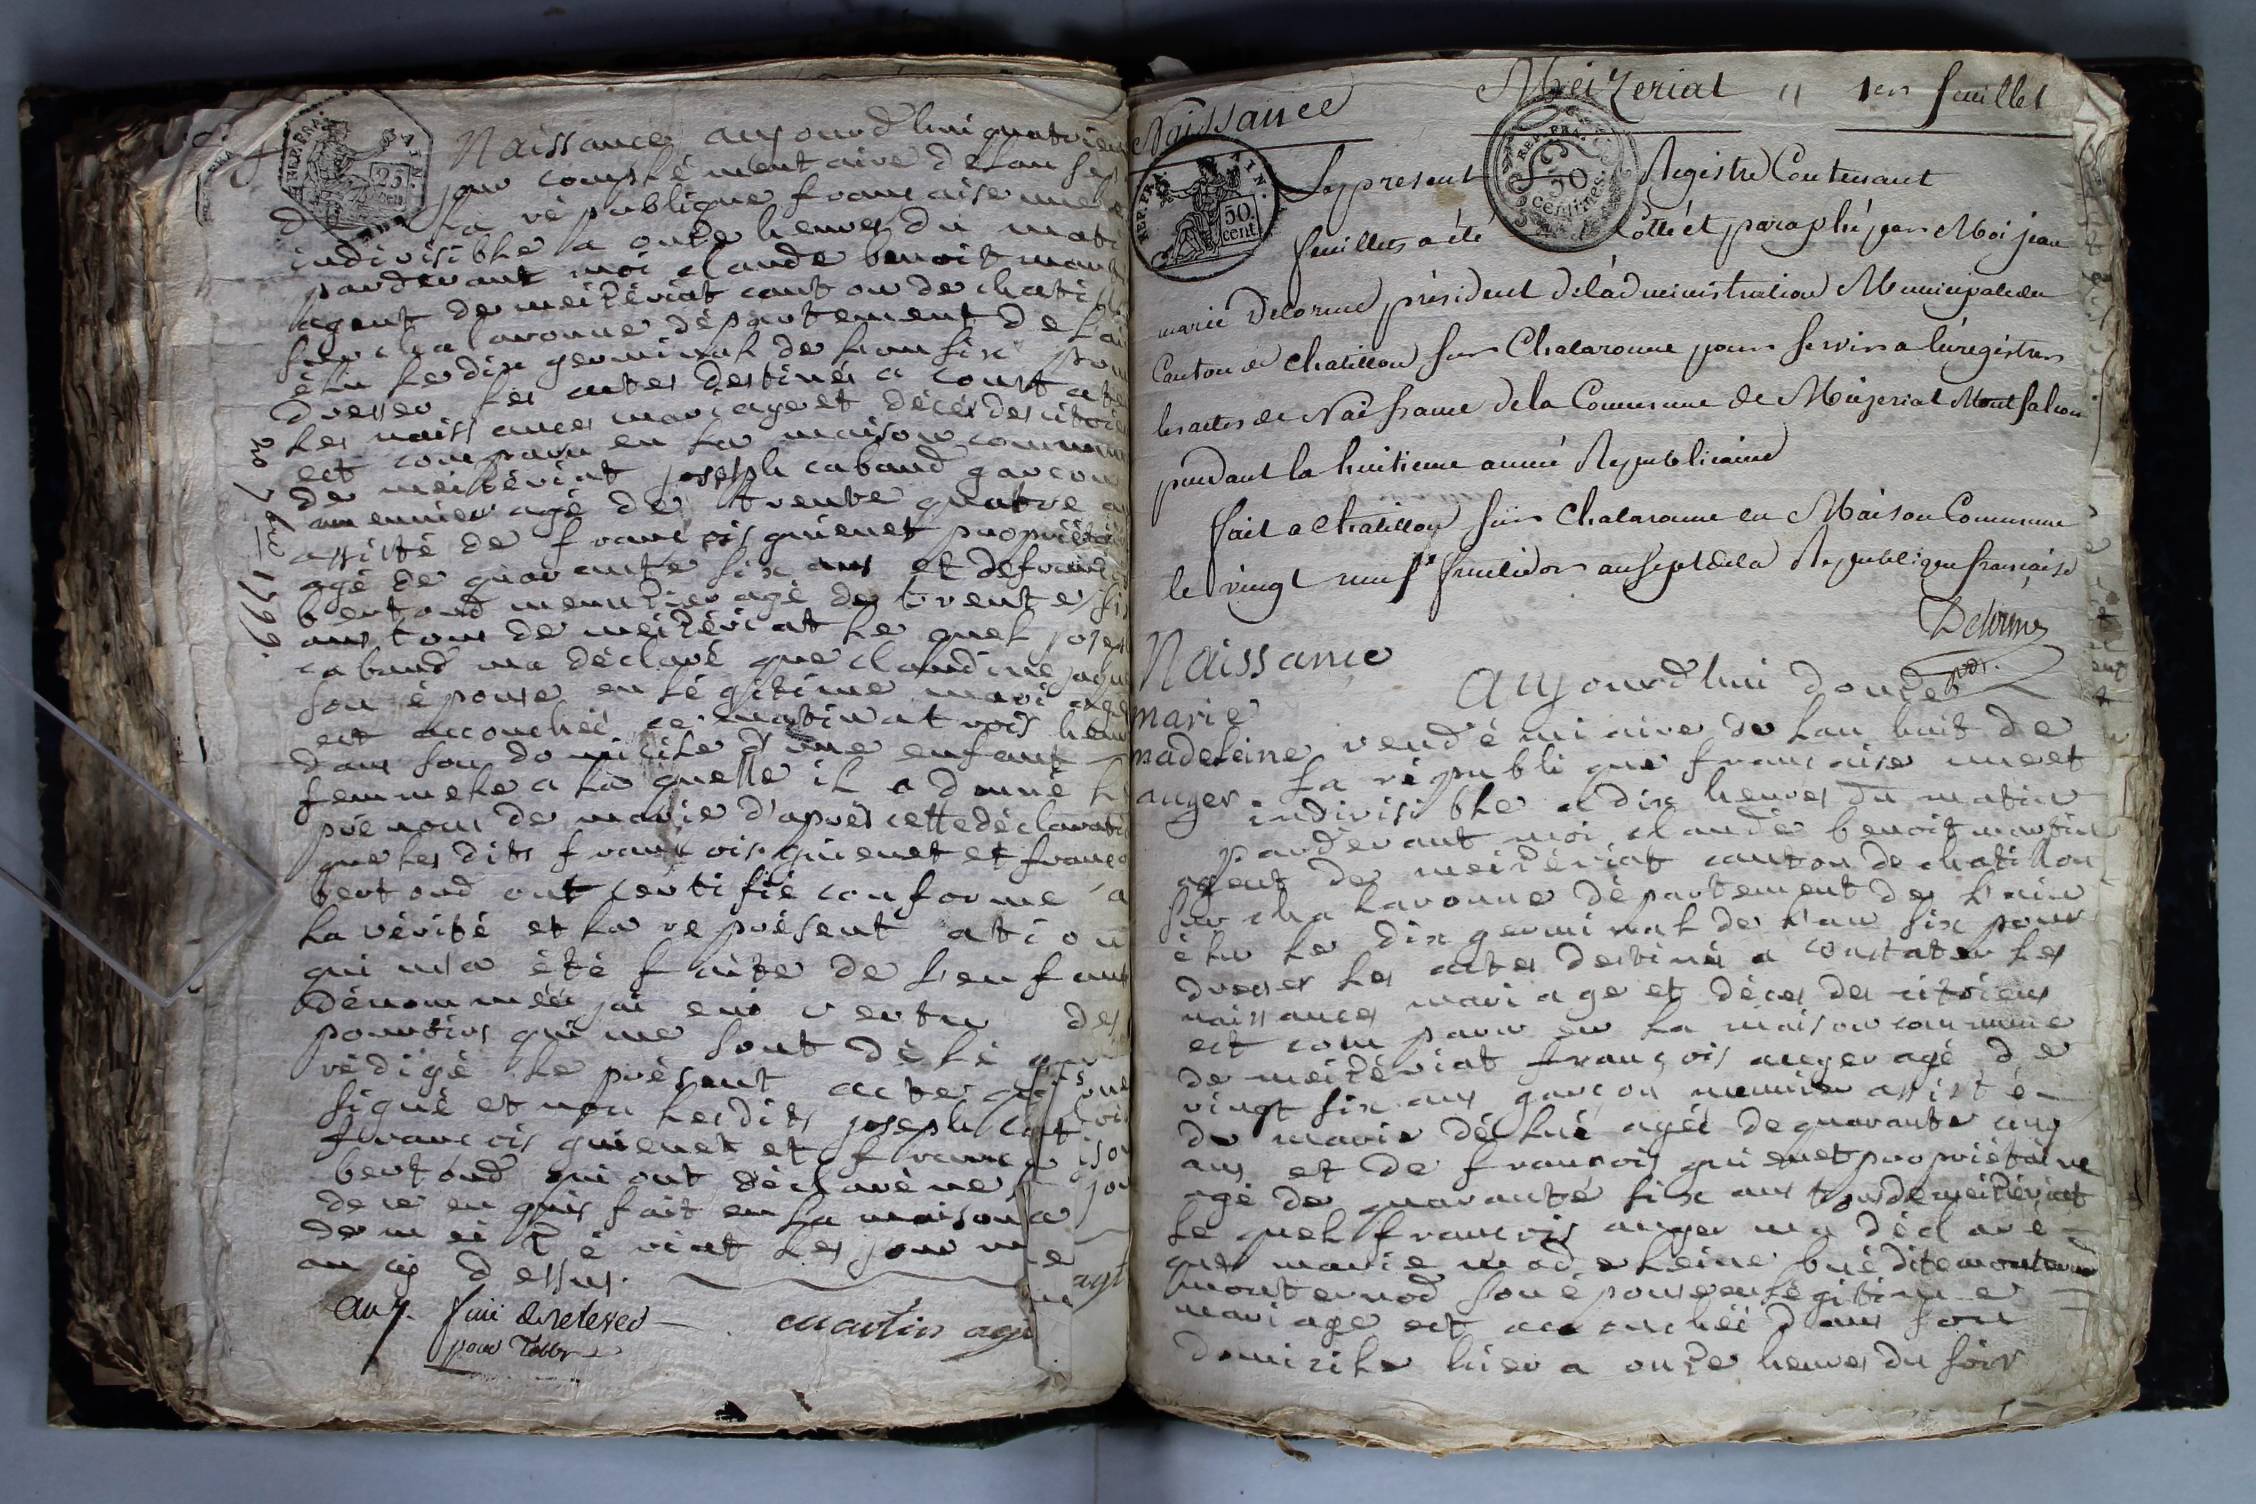 Naissance aujourd'hui quatrieme
jour complémentaire de lan sept
de la république francaise une
indivisible a onze heures du mati
pardevant moi claude benoit mart
agent de meizériat canton de chati
sur chalaronne département de l'ai
élu le dix germinal de l'an six pour
dresser les actes destinés a const ate
les naissances mariage et décés des citoie
est comparu en la maison commun
de meizériat joseph cabaud garcon
meunier agé de trente quatre a
assisté de francois guienet propriétai
agé de quarante six ans et de franc
bertoud meunier agé de trente six
ans tous de meizériat le quel josep
cabaud ma déclaré que claudine
son épouse en légitime mari age
est accouchéé ce matin at rois heur
dans son domicile d'une enfant
femmele a la quelle il a donné le
prénom de marie d'aprés cette déclarati
que les dits francois guienet et franço
bertoud ont certifié conforme a
la vérité et la représent ati on
qui m'a été faite de l'enfant
dénomméé jai en vertu des
pouvoirs qui me sont délé
rédigé le présent acte
signé et non les dits joseph
francois guienet et
bertoud qui ont déclaré ne
de ce en quis fait en la maison
de mei z é riat les jour
an cy dessus.
martin agt
20 7bre 1799.
REP. FRA.
AIN.
25 cen
Naissance
Meizeriat
1er feuillet
REP. FRA. AIN.
50. cent.
REP. FRA.
50 centimes.
Le present Registre Contenant
feuillets a été Cotté et paraphé par Moi jean
marie Delorme président de l'administration Municipale du
Canton de chatillon sur Chalaronne pour servir a l'enregistrer
les actes de Naissance de la Commune de Meizeriat Montfalcon
pendant la huitieme année Republicaine
fait a chatillon sur Chalaronne en Maison Commune
le vingt neuf fructidor an sept de la Republique française
Delorme
pdt.
Naissance
marie
madeleine
auger
aujourd'hui douze
vendémiaire de lan huit de
la république francaise une et
indivisible a dix heures du matin
pardevant moi claude benoit martin
agent de meizériat canton de chatillon
sur chalaronne département de l'ain
élu le dix germinal de l'an six pour
dresser les actes destinés a constater les
naissances mariage et déces des citoiens
est comparu en la maison commune
de meizériat françois auger agé de
vingt six ans garçon meunier assisté
de marie agéé de quarante cinq
ans et de françois guienet propriétaire
agé de quarante six ans tous de meizériat
le quel francois auger ma déclaré
que marie madeleine
son épouse en légitime
mariage est accouchéé dans son
domicile hier a onze heures du soir